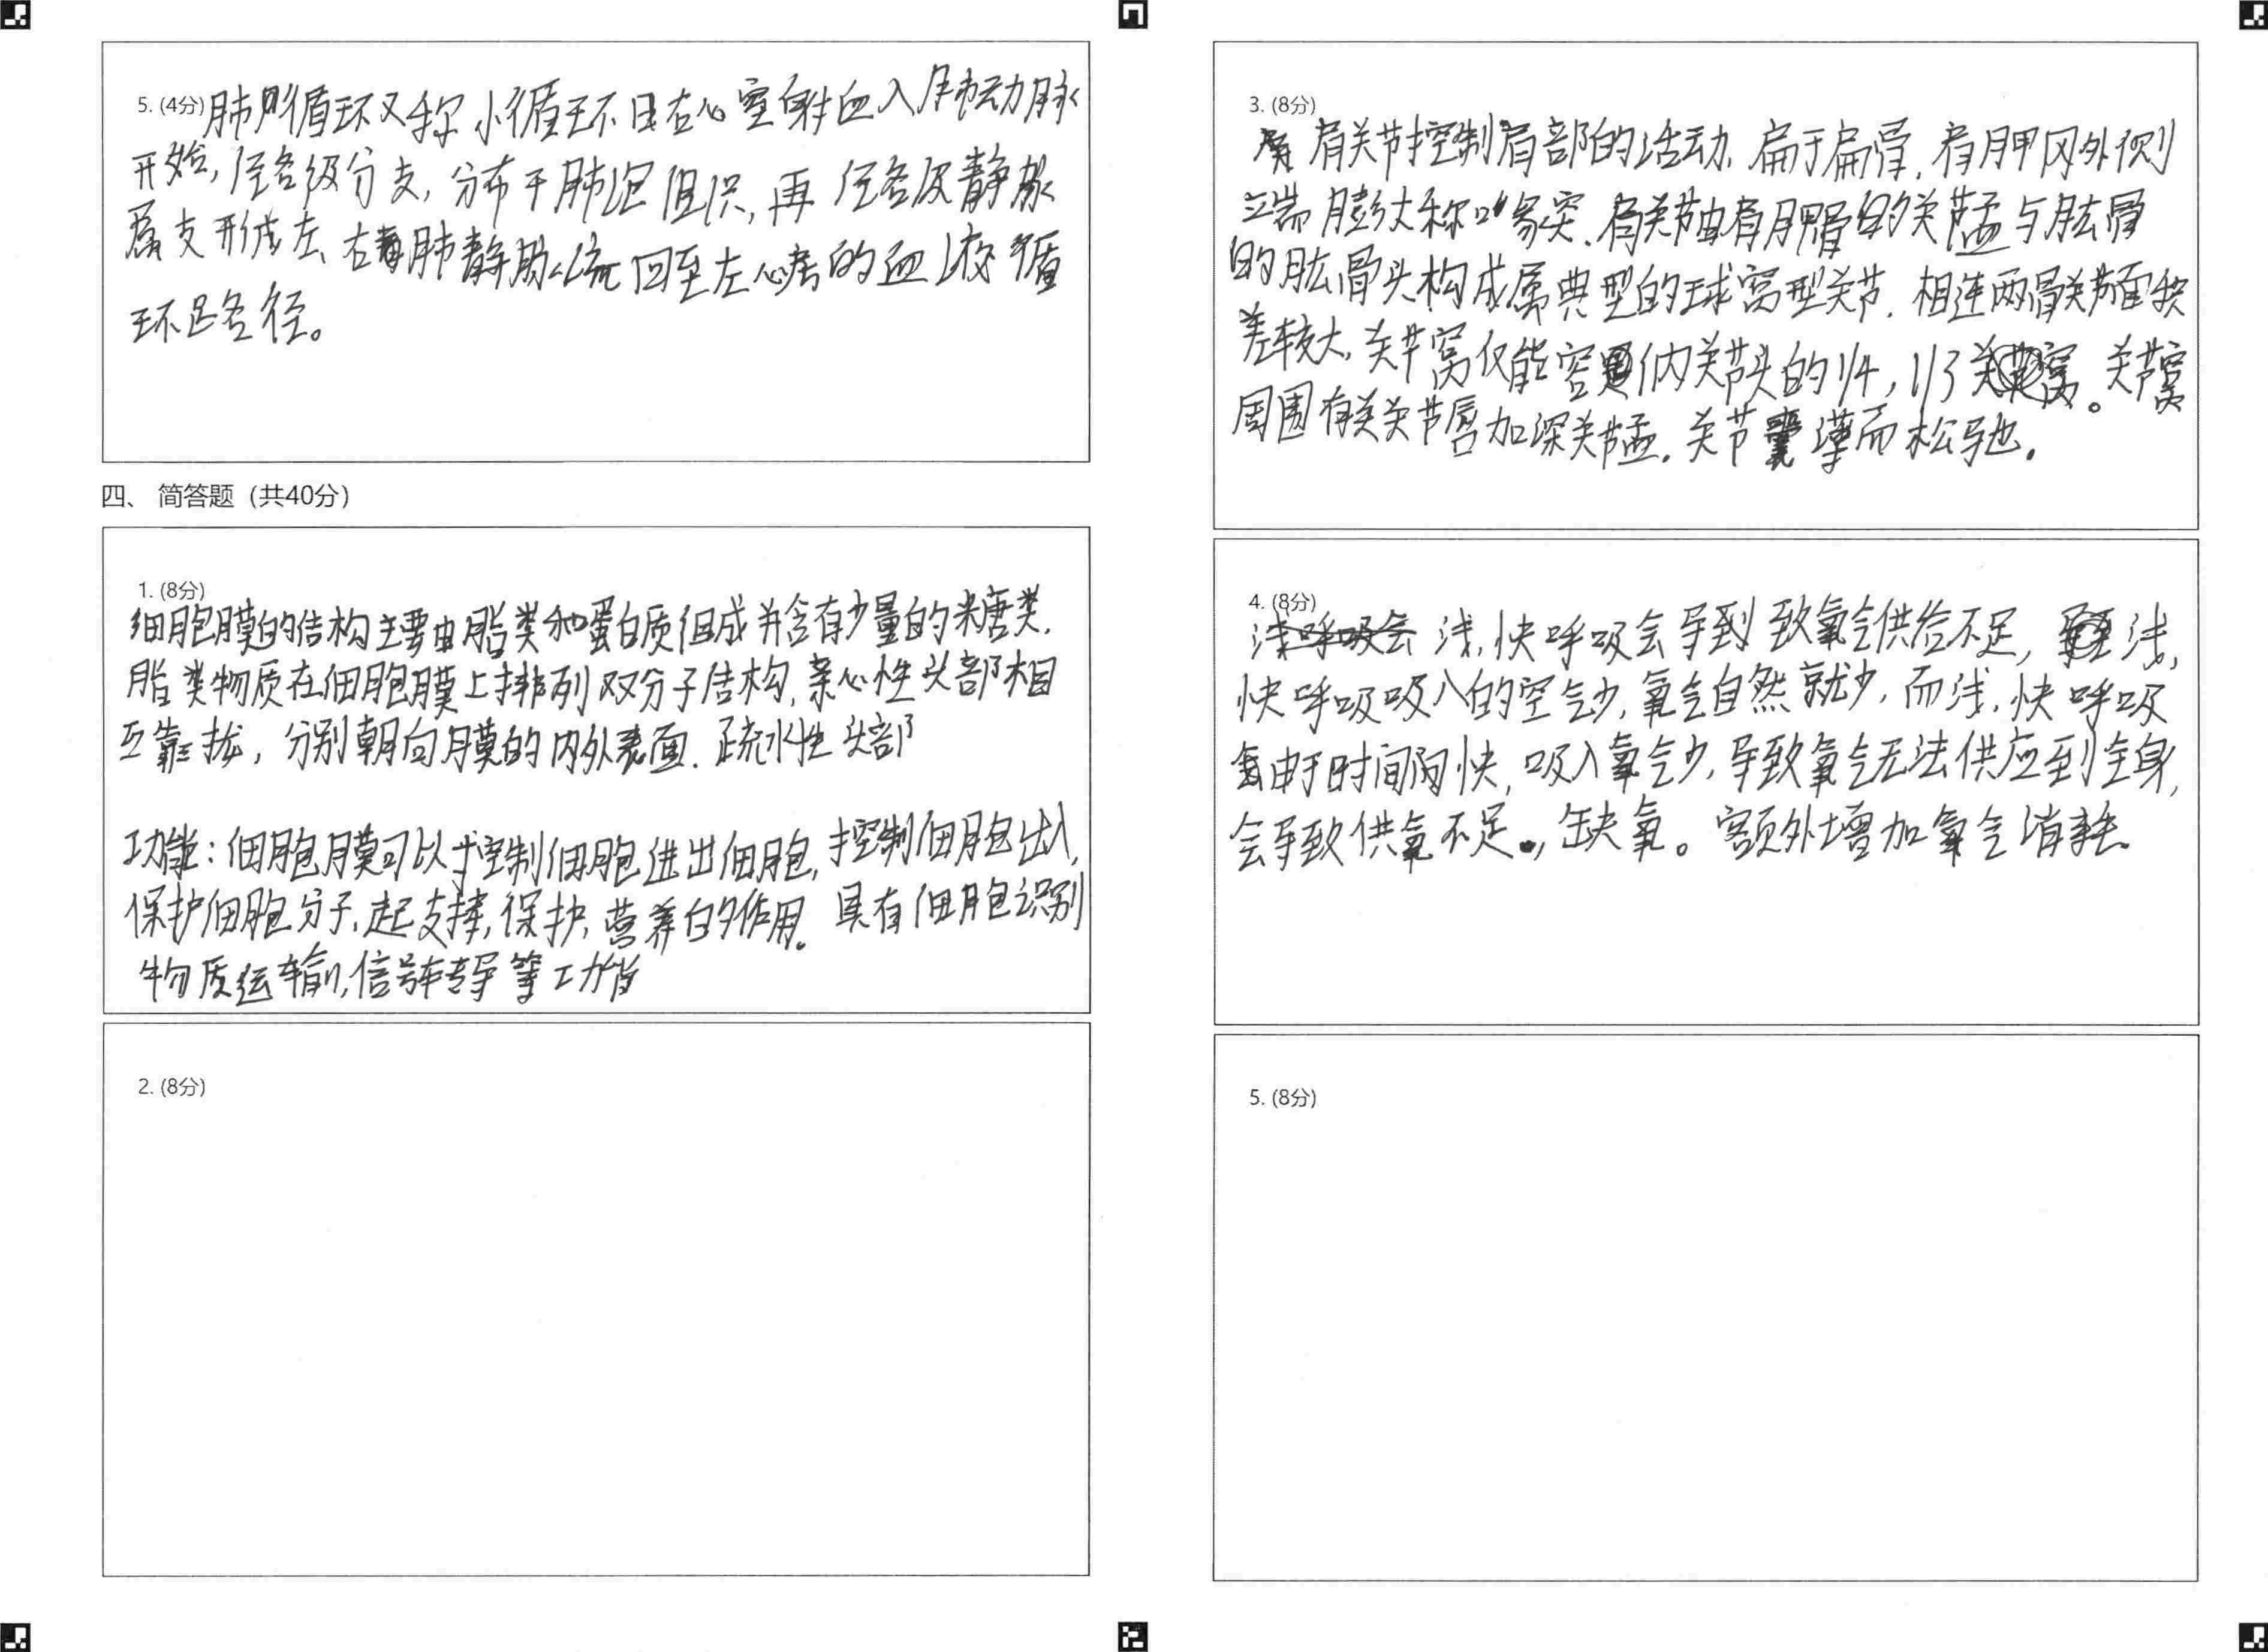 5. (4分) 肺循环又称小循环 由右心室射血入肺动脉
开始,经各级分支,分布于肺泡组织,再经各级静脉
属支形成左、右肺静脉流回至左心房的血液循
环路径。
四、 简答题 (共40分)
1. (8分)
细胞膜的结构主要由脂类和蛋白质组成并含有少量的糖类.
脂类物质在细胞膜上排列双分子结构,亲心性头部相
互靠拢,分别朝向膜的内外表面.疏水性头部
功能:细胞膜可以控制细胞进出细胞,控制细胞出入,
保护细胞分子,起支撑,保护,营养的作用。具有细胞识别
物质运输,信号转导等功能
2. (8分)
3. (8分)
肩关节控制肩部的活动,扁于扁骨,肩胛冈外侧
端膨大称喙突.肩关节由肩胛骨的关节盂与肱骨
的肱骨头构成属典型的球窝型关节.相连两骨关节面积
差较大,关节窝仅能容纳关节头的1/4,1/3。关节窝
周围有关关节唇加深关节盂.关节囊薄而松驰.
4. (8分)
浅,快呼吸会导到致氧气供给不足,浅,
快呼吸吸入的空气少,氧气自然就少,而浅,快呼吸
由于时间间快,吸入氧气少,导致氧气无法供应到全身,
会导致供氧不足,缺氧。额外增加氧气消耗.
5. (8分)